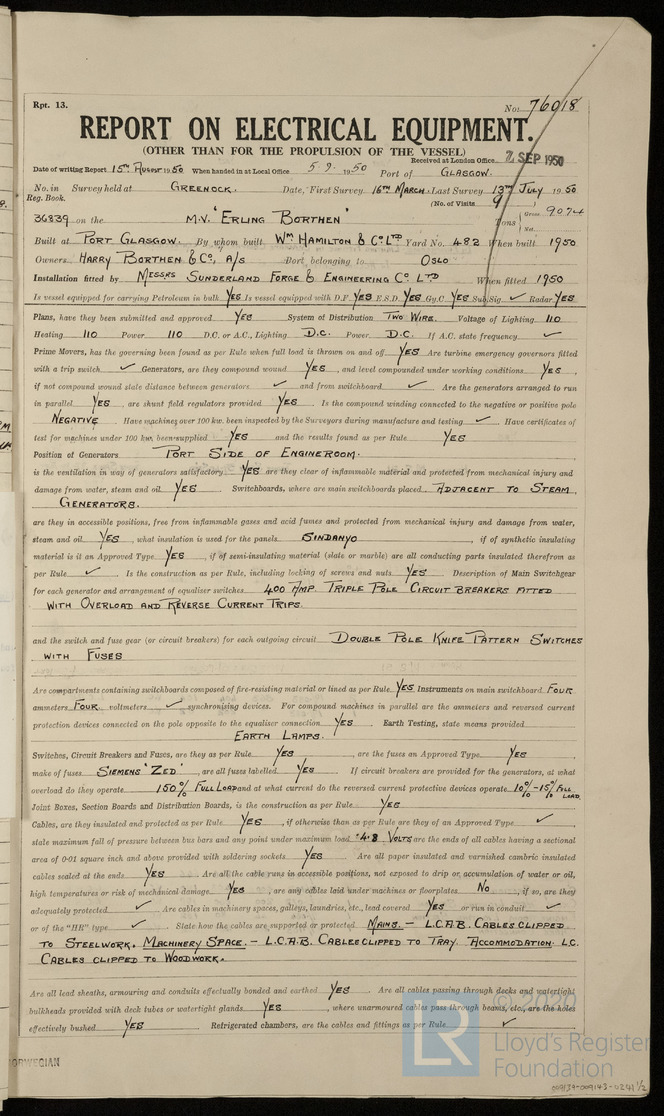 Rpt. 13.
No. 76018
REPORT ON ELECTRICAL EQUIPMENT.
(OTHER THAN FOR THE PROPULSION OF THE VESSEL)
Received at London Office 7 SEP 1950
Date of writing Report 15TH August 1950 When handed in at Local Office 5. 9. 1950 Port of GLASGOW.
No. in Reg. Book. Survey held at GREENOCK. Date, First Survey 16TH MARCH. Last Survey 13TH JULY 1950
(No. of Visits 9)
36839 on the M.V. "ERLING BORTHEN" Tons { Gross 9074 Net
Built at PORT GLASGOW. By whom built WM HAMILTON & CO LTD Yard No. 482 When built 1950
Owners HARRY BORTHEN & CO, A/S Port belonging to OSLO
Installation fitted by MESSRS SUNDERLAND FORGE & ENGINEERING CO LTD When fitted 1950
Is vessel equipped for carrying Petroleum in bulk YES Is vessel equipped with D.F. YES E.S.D. YES Gy.C. YES Sub.Sig. ✓ Radar YES
Plans, have they been submitted and approved YES System of Distribution TWO WIRE. Voltage of Lighting 110
Heating 110 Power 110 D.C. or A.C., Lighting D.C. Power D.C. If A.C. state frequency ✓
Prime Movers, has the governing been found as per Rule when full load is thrown on and off YES Are turbine emergency governors fitted
with a trip switch ✓ Generators, are they compound wound YES, and level compounded under working conditions YES,
if not compound wound state distance between generators ✓ and from switchboard ✓ Are the generators arranged to run
in parallel YES, are shunt field regulators provided YES Is the compound winding connected to the negative or positive pole
NEGATIVE Have machines over 100 kw. been inspected by the Surveyors during manufacture and testing ✓ Have certificates of
test for machines under 100 kw. been supplied YES and the results found as per Rule YES
Position of Generators PORT SIDE OF ENGINEROOM.
is the ventilation in way of generators satisfactory YES are they clear of inflammable material and protected from mechanical injury and
damage from water, steam and oil YES Switchboards, where are main switchboards placed ADJACENT TO STEAM
GENERATORS.
are they in accessible positions, free from inflammable gases and acid fumes and protected from mechanical injury and damage from water,
steam and oil YES, what insulation is used for the panels SINDANYO, if of synthetic insulating
material is it an Approved Type YES, if of semi-insulating material (slate or marble) are all conducting parts insulated therefrom as
per Rule ✓ Is the construction as per Rule, including locking of screws and nuts YES Description of Main Switchgear
for each generator and arrangement of equaliser switches 400 AMP. TRIPLE POLE CIRCUIT BREAKERS FITTED
WITH OVERLOAD AND REVERSE CURRENT TRIPS.
and the switch and fuse gear (or circuit breakers) for each outgoing circuit DOUBLE POLE KNIFE PATTERN SWITCHES
WITH FUSES
Are compartments containing switchboards composed of fire-resisting material or lined as per Rule YES Instruments on main switchboard FOUR
ammeters FOUR voltmeters ✓ synchronising devices. For compound machines in parallel are the ammeters and reversed current
protection devices connected on the pole opposite to the equaliser connection YES Earth Testing, state means provided
EARTH LAMPS.
Switches, Circuit Breakers and Fuses, are they as per Rule YES, are the fuses an Approved Type YES,
make of fuses SIEMENS "ZED", are all fuses labelled YES If circuit breakers are provided for the generators, at what
overload do they operate 150% FULL LOAD and at what current do the reversed current protective devices operate 10%-15% FULL LOAD.
Joint Boxes, Section Boards and Distribution Boards, is the construction as per Rule YES
Cables, are they insulated and protected as per Rule YES, if otherwise than as per Rule are they of an Approved Type ✓,
state maximum fall of pressure between bus bars and any point under maximum load 4.8 VOLTS are the ends of all cables having a sectional
area of 0.01 square inch and above provided with soldering sockets YES Are all paper insulated and varnished cambric insulated
cables sealed at the ends YES Are all the cable runs in accessible positions, not exposed to drip or accumulation of water or oil,
high temperatures or risk of mechanical damage YES, are any cables laid under machines or floorplates NO, if so, are they
adequately protected ✓ Are cables in machinery spaces, galleys, laundries, etc., lead covered YES or run in conduit ✓
or of the "HR" type ✓ State how the cables are supported or protected MAINS. - L.C.A.B. CABLES CLIPPED
TO STEELWORK. MACHINERY SPACE. - L.C.A.B. CABLES CLIPPED TO TRAY. ACCOMMODATION. L.C.
CABLES CLIPPED TO WOODWORK.
Are all lead sheaths, armouring and conduits effectually bonded and earthed YES Are all cables passing through decks and watertight
bulkheads provided with deck tubes or watertight glands YES, where unarmoured cables pass through beams, etc., are the holes
effectively bushed YES Refrigerated chambers, are the cables and fittings as per Rule ✓
LR
© 2020
Lloyd's Register
Foundation
NORWEGIAN
009134-009143-0241 1/2